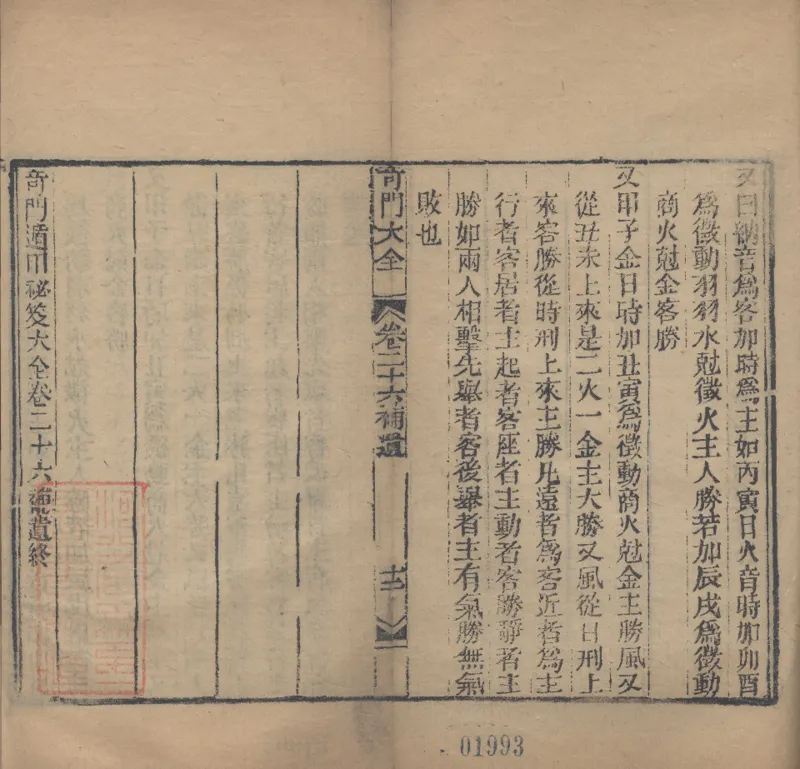 又曰納音爲客加時爲主如丙寅日火音時加卯酉
爲徵動羽羽水尅徵火主人勝若加辰戌爲徵動
商火尅金客勝
又甲子金日時加丑寅爲徵動商火尅金主勝風又
從丑未上來是二火一金主大勝又風從日刑上
來客勝從時刑上來主勝凡遠者爲客近者爲主
行者客居者主起者客座者主動者客勝靜者主
勝如兩人相擊先舉者客後舉者主有氣勝無氣
敗也
奇門大全
卷二十六補遺
十二
奇門遁甲秘笈大全卷二十六補遺終
01993